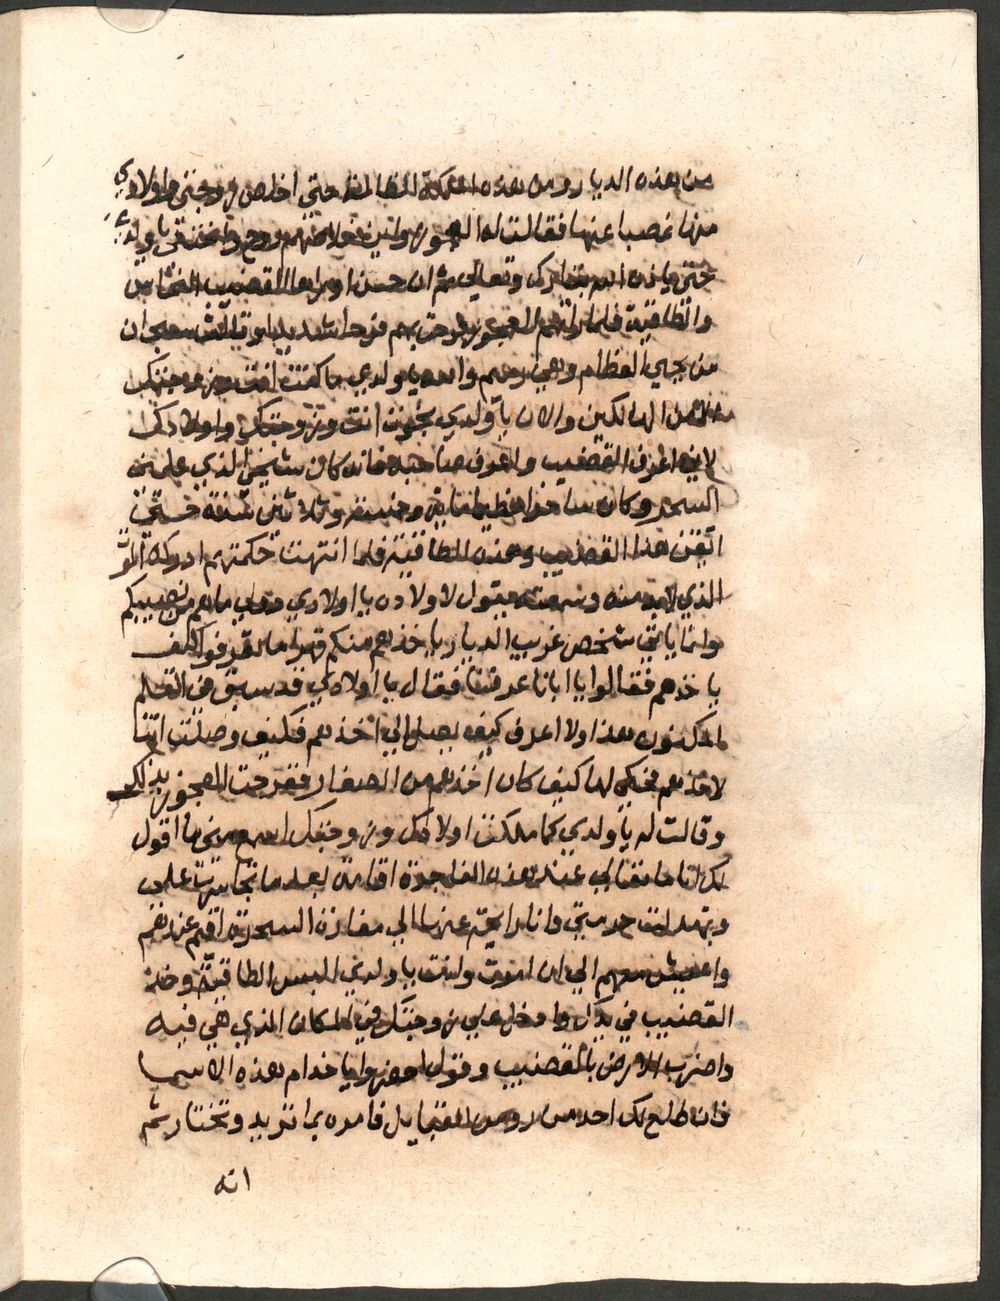 من هذه الديار ومن هذه الملكة الظالمة حتى اخلص زوجتي واولادي
منها غصبا عنها فقالت له العجوز واين خلاصهم روح واختفي يا ولدي
حتى ياذن الله تبارك وتعالى ثم ان حسن اوراها القضيب النحاس
والطاقية فلما راتهم العجوز فرحت بهم فرحا شديدا وقالت سبحان
من يحيي العظام وهي رميم والله يا ولدي ما كنت انت وزوجتك
الا من الهالكين والان يا ولدي نجوت انت وزوجتك واولادك
لاني اعرف القضيب واعرف صاحبه فانه كان شيخي الذي علمني
السحر وكان ساحرا عظيما مائة وخمسة وثلاثين سنة حتى
اتقن هذا القضيب وهذه الطاقية فلما انتهت حكمتهم ادركه الموت
الذي لابد منه وسمعته يقول لاولاده يا اولادي هولي ما هم من نصيبكم
وانما ياتي شخص غريب الديار ياخذهم منكم قهرا ما تعرفوا كيف
ياخذهم فقالوا يا ابانا عرفنا فقال يا اولادي قد سبق في القلم
المكنون هذا ولا اعرف كيف يصل الي اخذهم فكيف وصلت انت
لاخذهم فحكي لها كيف كان اخذهم من الصغار ففرحت العجوز بذلك
وقالت له يا ولدي كما ملكت اولادك وزوجتك اسمع مني ما اقول
لك انا ما بقا لي عند هذه الفاجرة اقامة بعد ما تجاسرت علي
وبهدلت حرمتي وانا رايحة عنها الي مغارة السحرة اقيم عندهم
واعيش معهم الي ان اموت وانت يا ولدي البس الطاقية وخذ
القضيب في يدك وادخل علي زوجتك في المكان الذي هي فيه
واضرب الارض بالقضيب وقول احضروا يا خدام هذه الاسما
فان طلع لك احد من روس القبايل فامره بما تريد وتختار ثم
انه